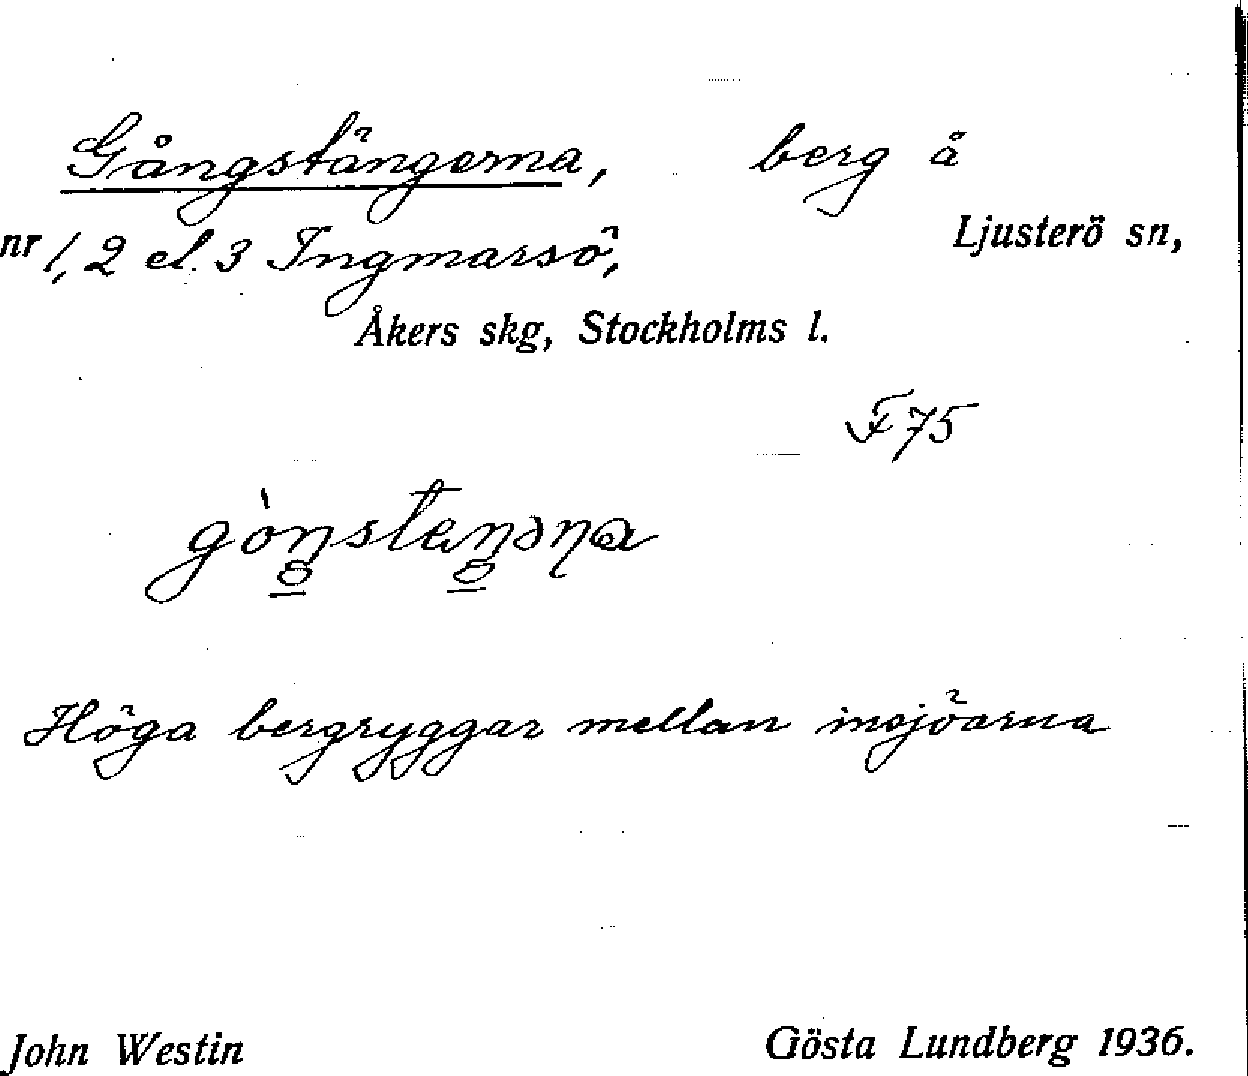 Gångstängerna, berg å
nr 1, 2 el. 3 Ingmarsö, Ljusterö sn,
Åkers skg, Stockholms l.
F 75
Höga bergryggar mellan insjöarna
John Westin Gösta Lundberg 1936.